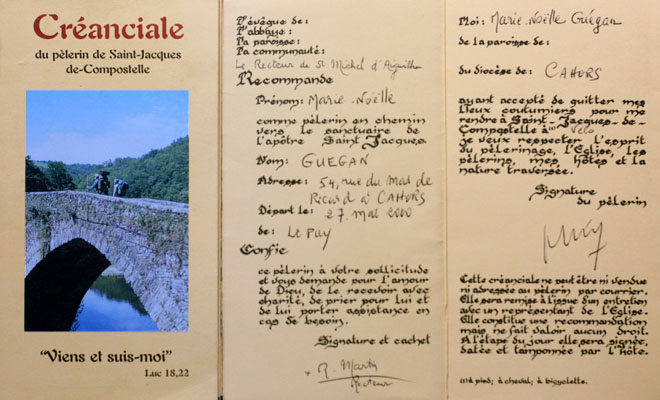 Créanciale
du pèlerin de Saint-Jacques
de-Compostelle
"Viens et suis-moi"
Luc 18,22
L'évêque de:
L'abbaye:
La paroisse:
La communauté:
Le Recteur de St Michel d'Aiguilhe
Recommande
Prénom: Marie-Noëlle
comme pèlerin en chemin
vers le sanctuaire de
l'apôtre Saint Jacques,
Nom: GUEGAN
Adresse: 54, rue du Mal de
à CAHORS
Départ le: 27 mai 2000
de: Le Puy
Confie
ce pèlerin à votre sollicitude
et vous demande pour l'amour
de Dieu, de le recevoir avec
charité, de prier pour lui et
de lui porter assistance en
cas de besoin.
Signature et cachet
+ R. Martin
Recteur
Moi: Marie-Noëlle Guégan
de la paroisse de:
du diocèse de: CAHORS
ayant accepté de quitter mes
lieux coutumiers pour me
rendre à Saint-Jacques-de-
Compostelle à (1) vélo
je veux respecter l'esprit
du pèlerinage, l'Eglise, les
pèlerins, mes hôtes et la
nature traversée.
Signature
du pèlerin
Cette créanciale ne peut être ni vendue
ni adressée au pèlerin par courrier.
Elle sera remise à l'issue d'un entretien
avec un représentant de l'Eglise.
Elle constitue une recommandation
mais ne fait valoir aucun droit.
A l'étape du jour elle sera signée,
datée et tamponnée par l'hôte.
(1) à pied; à cheval; à bicyclette.